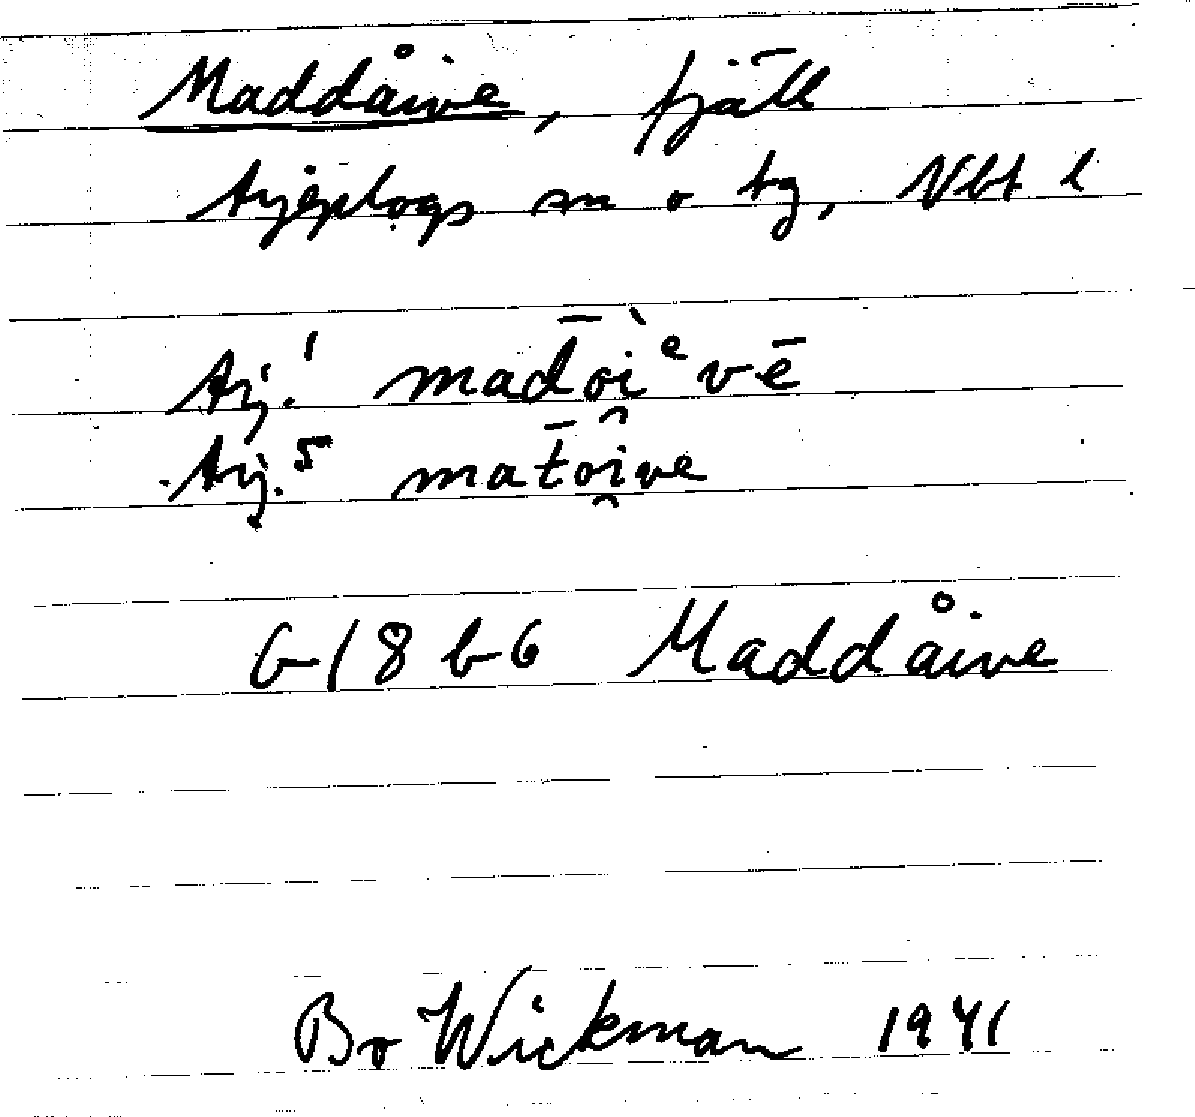 Maddåive, fjäll
Arjeplogs sn o tg, Vbt l
Arj.¹ mad̄oi̯ᵉvē
Arj.⁵ mat̄oi̯ve
G-18 b-6 Maddåive
Bo Wickman 1941